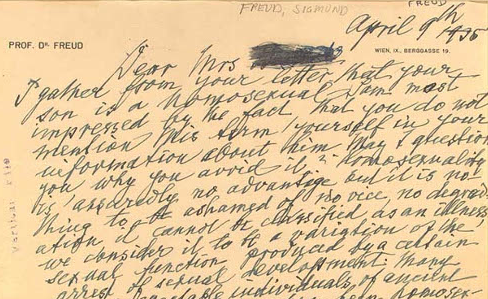 FREUD, SIGMUND
FREUD
April 9th 1935
PROF. DR. FREUD
WIEN, IX., BERGGASSE 19.
Dear Mrs
I gather from your letter that your
son is a homosexual. I am most
impressed by the fact, that you do not
mention this term yourself in your
information about him. May I question
you why you avoid it? Homosexuality
is assuredly no advantage but it is no-
thing to be ashamed of, no vice, no degrad-
ation, it cannot be classified as an illness;
we consider it to be a variation of the
sexual function produced by a certain
arrest of sexual development. Many
individuals of ancient
homosex-